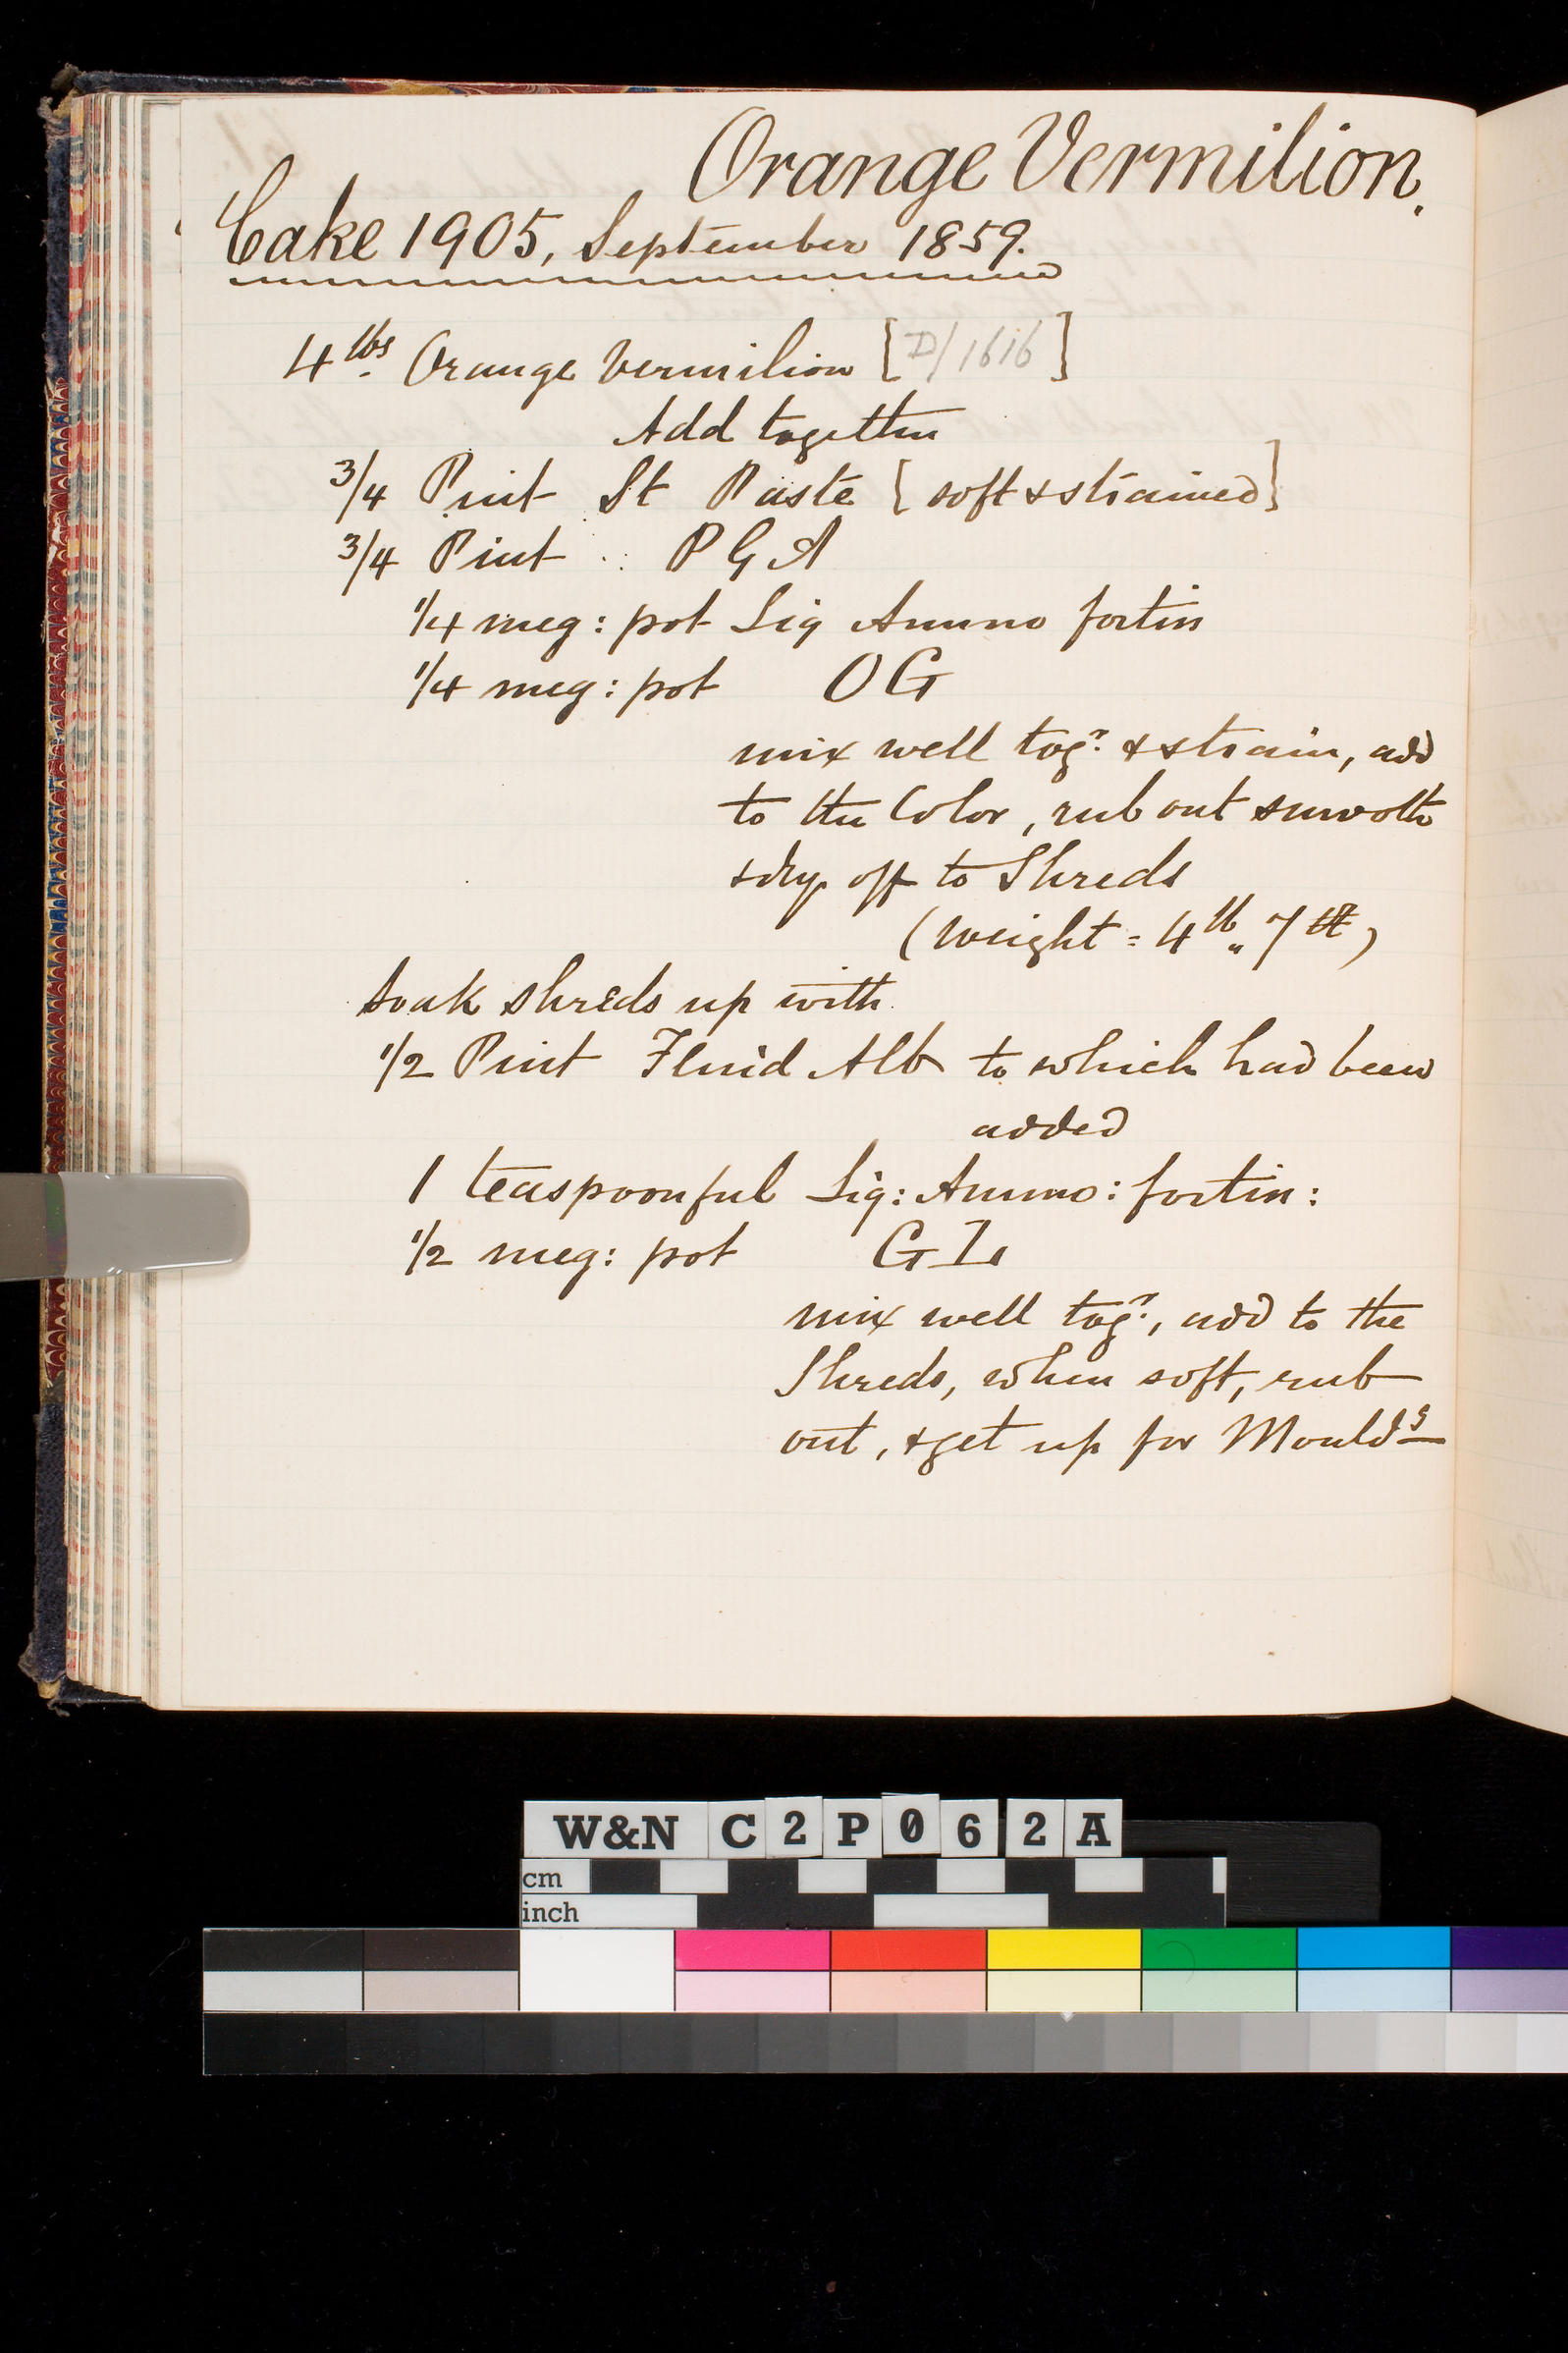 Orange Vermilion.
Cake 1905, September 1859.
4 lbs Orange Vermilion [D/1616]
Add together
3/4 Pint St Paste [soft & strained]
3/4 Pint P G A
1/4 meg: pot Liq Ammo fortis
1/4 meg: pot OG
mix well togr. & strain, add
to the Color, rub out smooth
& dry off to Shreds
(weight = 4 lb 7
Soak shreds up with
1/2 Pint Fluid Alb to which had been
added
1 teaspoonful Liq: Ammo: fortis:
1/2 meg: pot GL
mix well togr., add to the
Shreds, when soft, rub
out, & get up for Moulds
W&N C2P062A
cm
inch